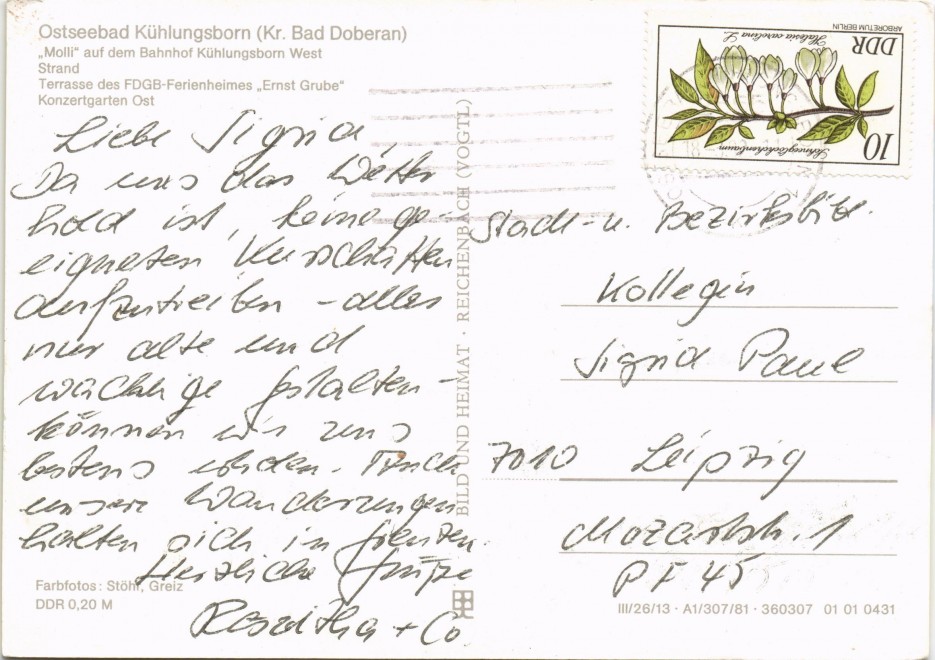 Ostseebad Kühlungsborn (Kr. Bad Doberan)
„Molli“ auf dem Bahnhof Kühlungsborn West
Strand
Terrasse des FDGB-Ferienheimes „Ernst Grube“
Konzertgarten Ost
Liebe Sigrid,
Da uns das Wetter
hold ist, keine ge-
eigneten Kurschatten
aufzutreiben - alles
nur alte und
Gestalten -
können wir uns
bestens. Auch
unsere Wanderungen
halten sich in Grenzen.
Herzliche Grüße
Roswitha + Co
Farbfotos: Stöhr, Greiz
DDR 0,20 M
BILD UND HEIMAT · REICHENBACH (VOGTL)
ARBORETUM BERLIN
DDR
Halesia carolina L.
Schneeglöckchenbaum
10
Stadt- u. Bezirksbibl.
Kollegin
Sigrid Paul
7010 Leipzig
Mozartstr. 1
PF 45
III/26/13 · A1/307/81 · 360307 01 01 0431